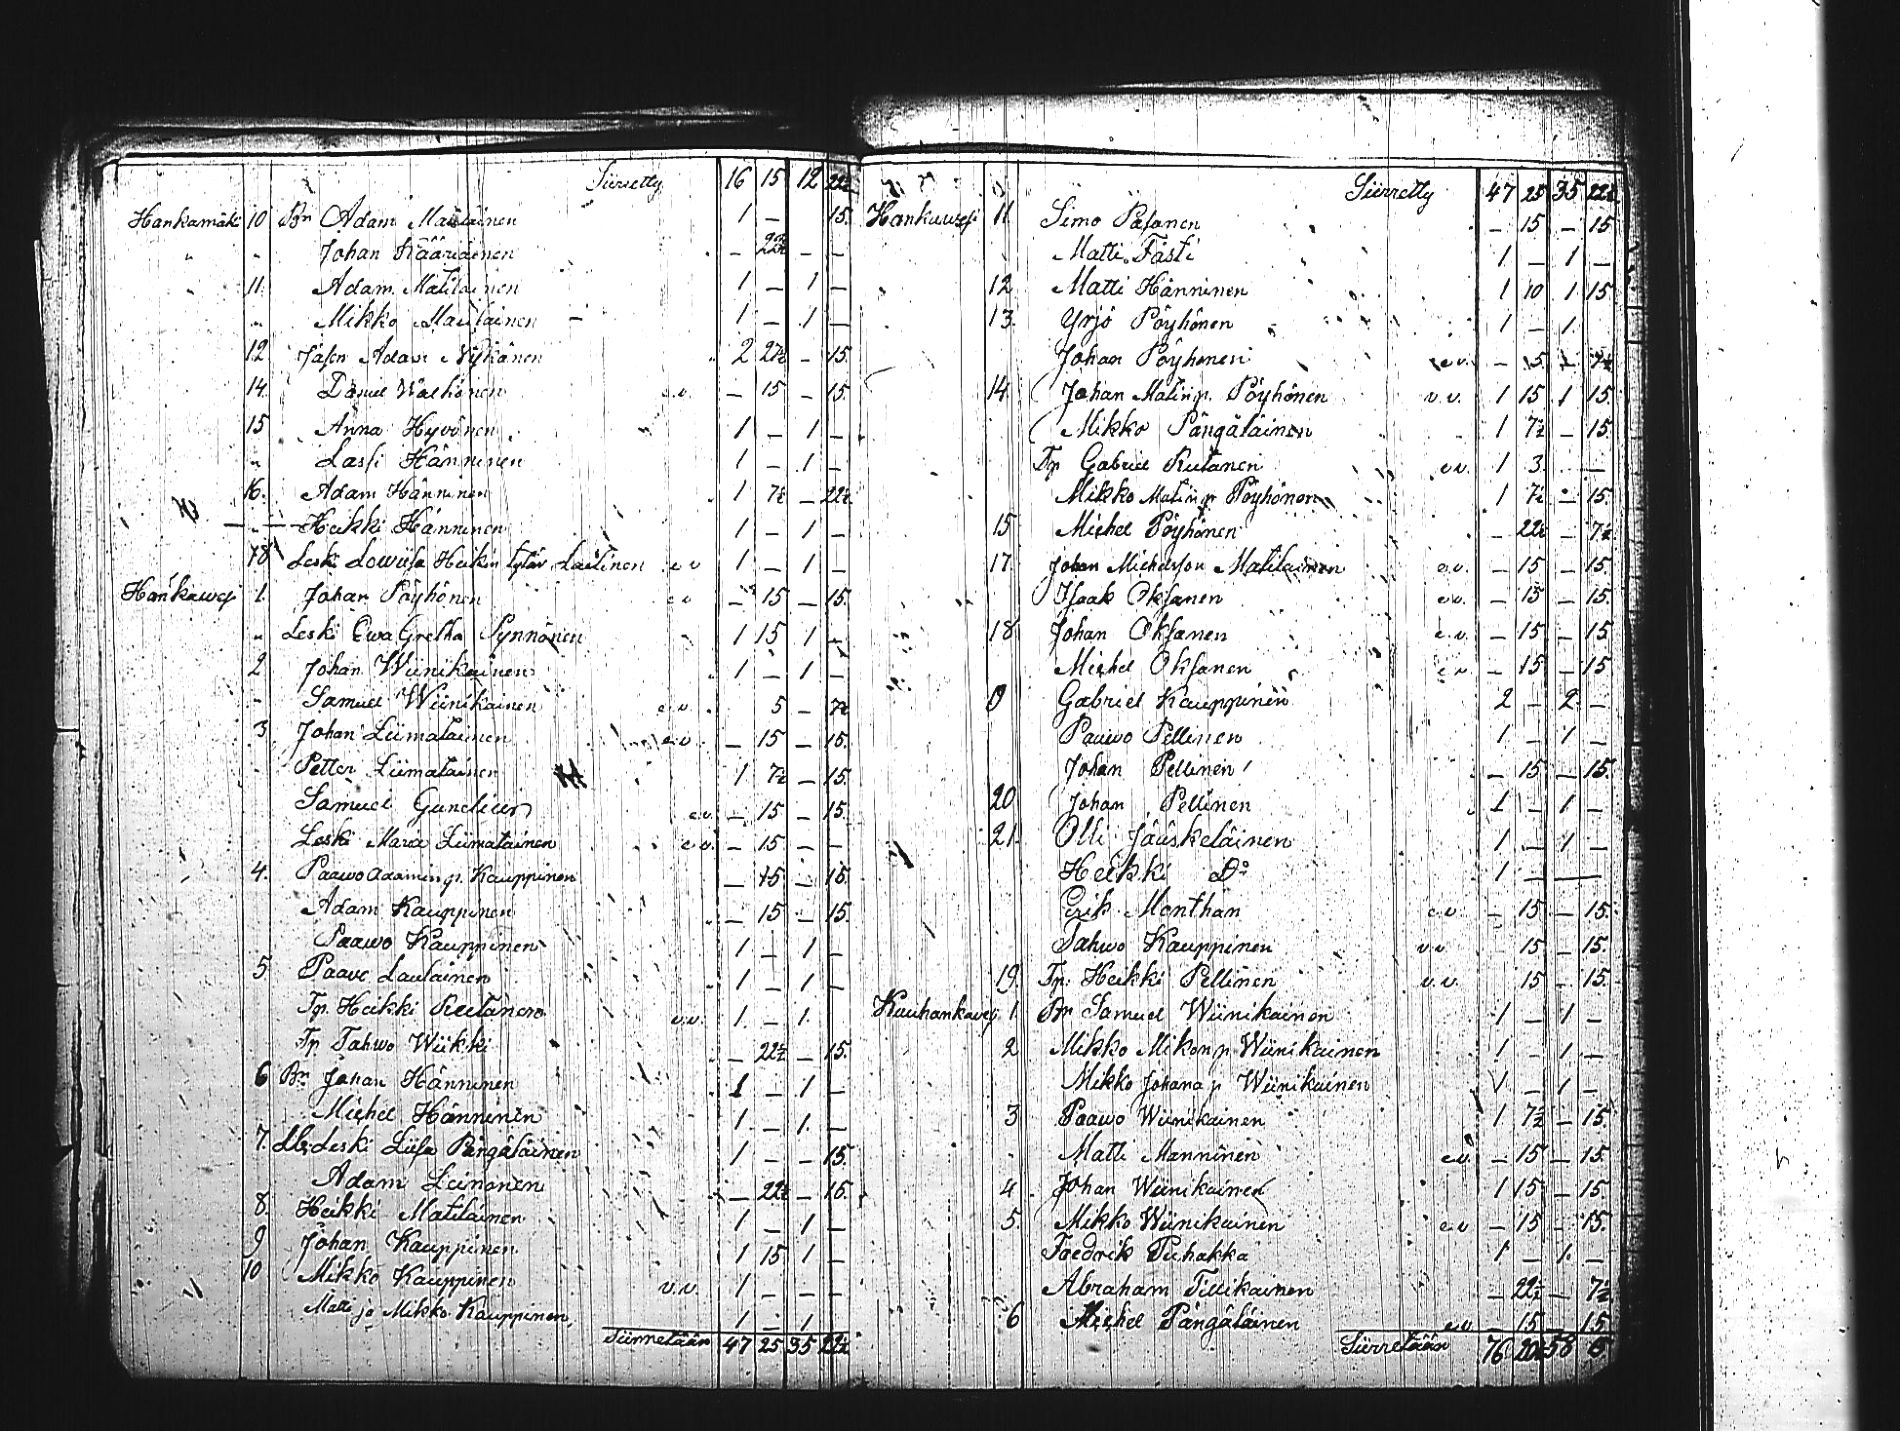 Siirretty 16 15 12 22½
Hankamäki 10 Bn Adam Matilainen 1 — 15.
" " Johan Kääriäinen — 22½ — —
11 Adam Matilainen 1 — 1 —
" Mikko Matilainen 1 — 1 —
12 Adam Nykänen 2 27½ — 15.
14. Daniel Wäthönen v.v. — 15 — 15.
15 Anna Hyvönen 1 — 1 —
" Lassi Hänninen 1 — 1 —
16. Adam Hänninen 1 7½ — 22½
Heikki Hänninen 1 — 1 —
18 Leski Lowiisa Heikin tytär Laitinen v.v 1 — 1 —
Hankawesi 1. Johan Pöyhönen v.v — 15 — 15.
" Leski Ewa Gretha Synnönen 1 15 1 —
2 Johan Wiinikainen 1 — 1 —
Samuel Wiinikainen v.v. 5 — 7½
3 Johan Liimatainen v.v. — 15 — 15.
Petter Liimatainen 1 7½ — 15.
Samuel v.v. — 15 — 15.
Leski Maria Liimatainen v.v. — 15 — —
4. Paawo Adamin p. Kauppinen — 15 — 15.
Adam Kauppinen — 15 — 15.
Paawo Kauppinen 1 — 1 —
5 Paavo Lautiainen 1 — 1 —
Tp. Heikki Rutanen v.v. 1 — 1 —
Tp Tahwo Wiikki — 22½ — 15.
6 Bn Johan Hänninen 1 — 1 —
Michel Hänninen 1 — 1 —
7. Leski Liisa Pängäläinen 1 — — 15.
Adam Leinonen — 22½ — 15.
8. Heikki Matilainen 1 — 1 —
9 Johan Kauppinen 1 15 1 —
10 Mikko Kauppinen v.v. 1 — — —
Matti ja Mikko Kauppinen 1 — 1
Siirretään 47 25 35 22½
Siirretty 47 25 35 22½
Hankawesi 11 Simo Pasanen — 15 — 15
Matti Fästi 1 — 1 —
12 Matti Hänninen 1 10 1 15
13. Yrjö Pöyhönen 1 — 1
Johan Pöyhönen v.v. — 5 — 7½
14. Johan Matinp. Pöyhönen v.v. 1 15 1 15
Mikko Pängäläinen 1 7½ — 15.
Tp Gabriel Rutanen v.v. 1 3 —
Mikko Matin p. Pöyhönen 1 7½ — 15.
15 Michel Pöyhönen 22½ — 7½
17. Johan Michelson Matilainen v.v. — 15 — 15.
Isaak Oksanen v.v. — 15 — 15.
18 Johan Oksanen v.v. — 15 — 15
Michel Oksanen — 15 — 15
0 Gabriel Kauppinen 2 — 2 —
Paawo Pellinen 1 — 1 —
Johan Pellinen — 15 — 15.
20 Johan Pellinen 1 — 1 —
21. Olli Jääskeläinen 1 — 1 —
Heikki Do 1 — — —
Erik Monthan v.v. — 15 — 15.
Tahwo Kauppinen v.v. 15 — 15.
19. Tp. Heikki Pellinen v.v. 15 — 15.
Kuuhankavesi 1. Bn Samuel Wiinikainen 1 — 1 —
2 Mikko Mikonp. Wiinikainen 1 — 1 —
Mikko Johana p Wiinikainen 1 — 1 —
3 Paawo Wiinikainen 1 7½ — 15.
Matti Manninen v.v. — 15 — 15.
4 Johan Wiinikainen 1 15 — 15
5. Mikko Wiinikainen v.v — 15 — 15.
Fredrik Puhakka 1 — 1. —
Abraham Tillikainen — 22½ — 7½
6 Michel Pängäläinen v.v. — 15 15.
Siirretään 76 20½ 58 15